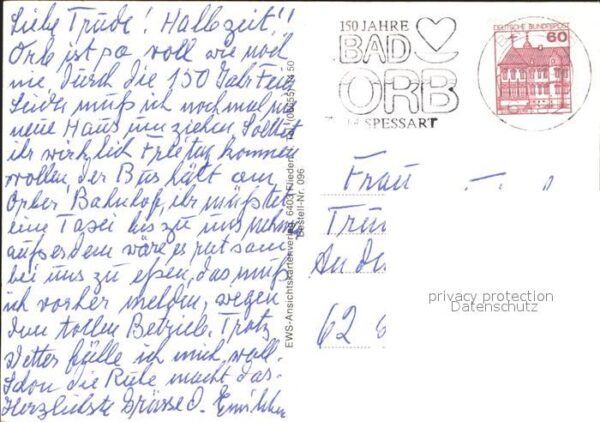 Liebe Trude! Halbzeit!!
Orb ist so voll wie noch
nie, durch die 150 Jahr Feier
Leider muß ich nochmal, ins
neue Haus umziehen. Solltet
ihr wirklich Freitag kommen
wollen, der Bus hält am
Orber Bahnhof, ihr müßtet
eine Taxei bis zu uns nehmen
ausserdem wäre es ratsam
bei uns zu eßen, das muß
ich vorher melden, wegen
dem tollen Betrieb. Trotz
Wetter fühle ich mich wohl.
Schon die Ruhe macht das.
Herzlichste Grüsse d.
EWS-Ansichtskartenverlag, 6403 Flieden
Bestell-Nr. 096
150 JAHRE
BAD
ORB
SPESSART
DEUTSCHE BUNDESPOST
60
Frau
Tru
An de
62
privacy protection
Datenschutz